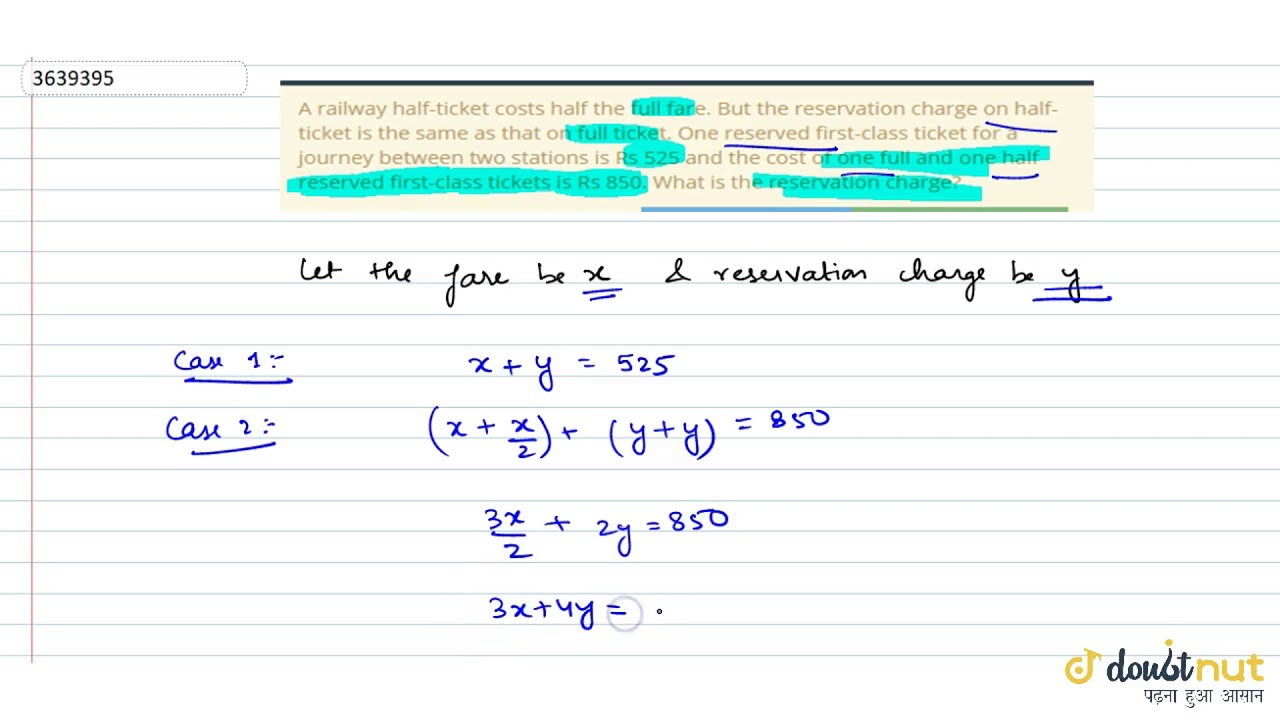 3639395
A railway half-ticket costs half the full fare. But the reservation charge on half-
ticket is the same as that on full ticket. One reserved first-class ticket for a
journey between two stations is Rs 525 and the cost of one full and one half
reserved first-class tickets is Rs 850. What is the reservation charge?
Let the fare be x & reservation charge be y
Case 1:- x + y = 525
Case 2:- (x + x/2) + (y + y) = 850
3x/2 + 2y = 850
3x + 4y =
doubtnut
पढ़ना हुआ आसान